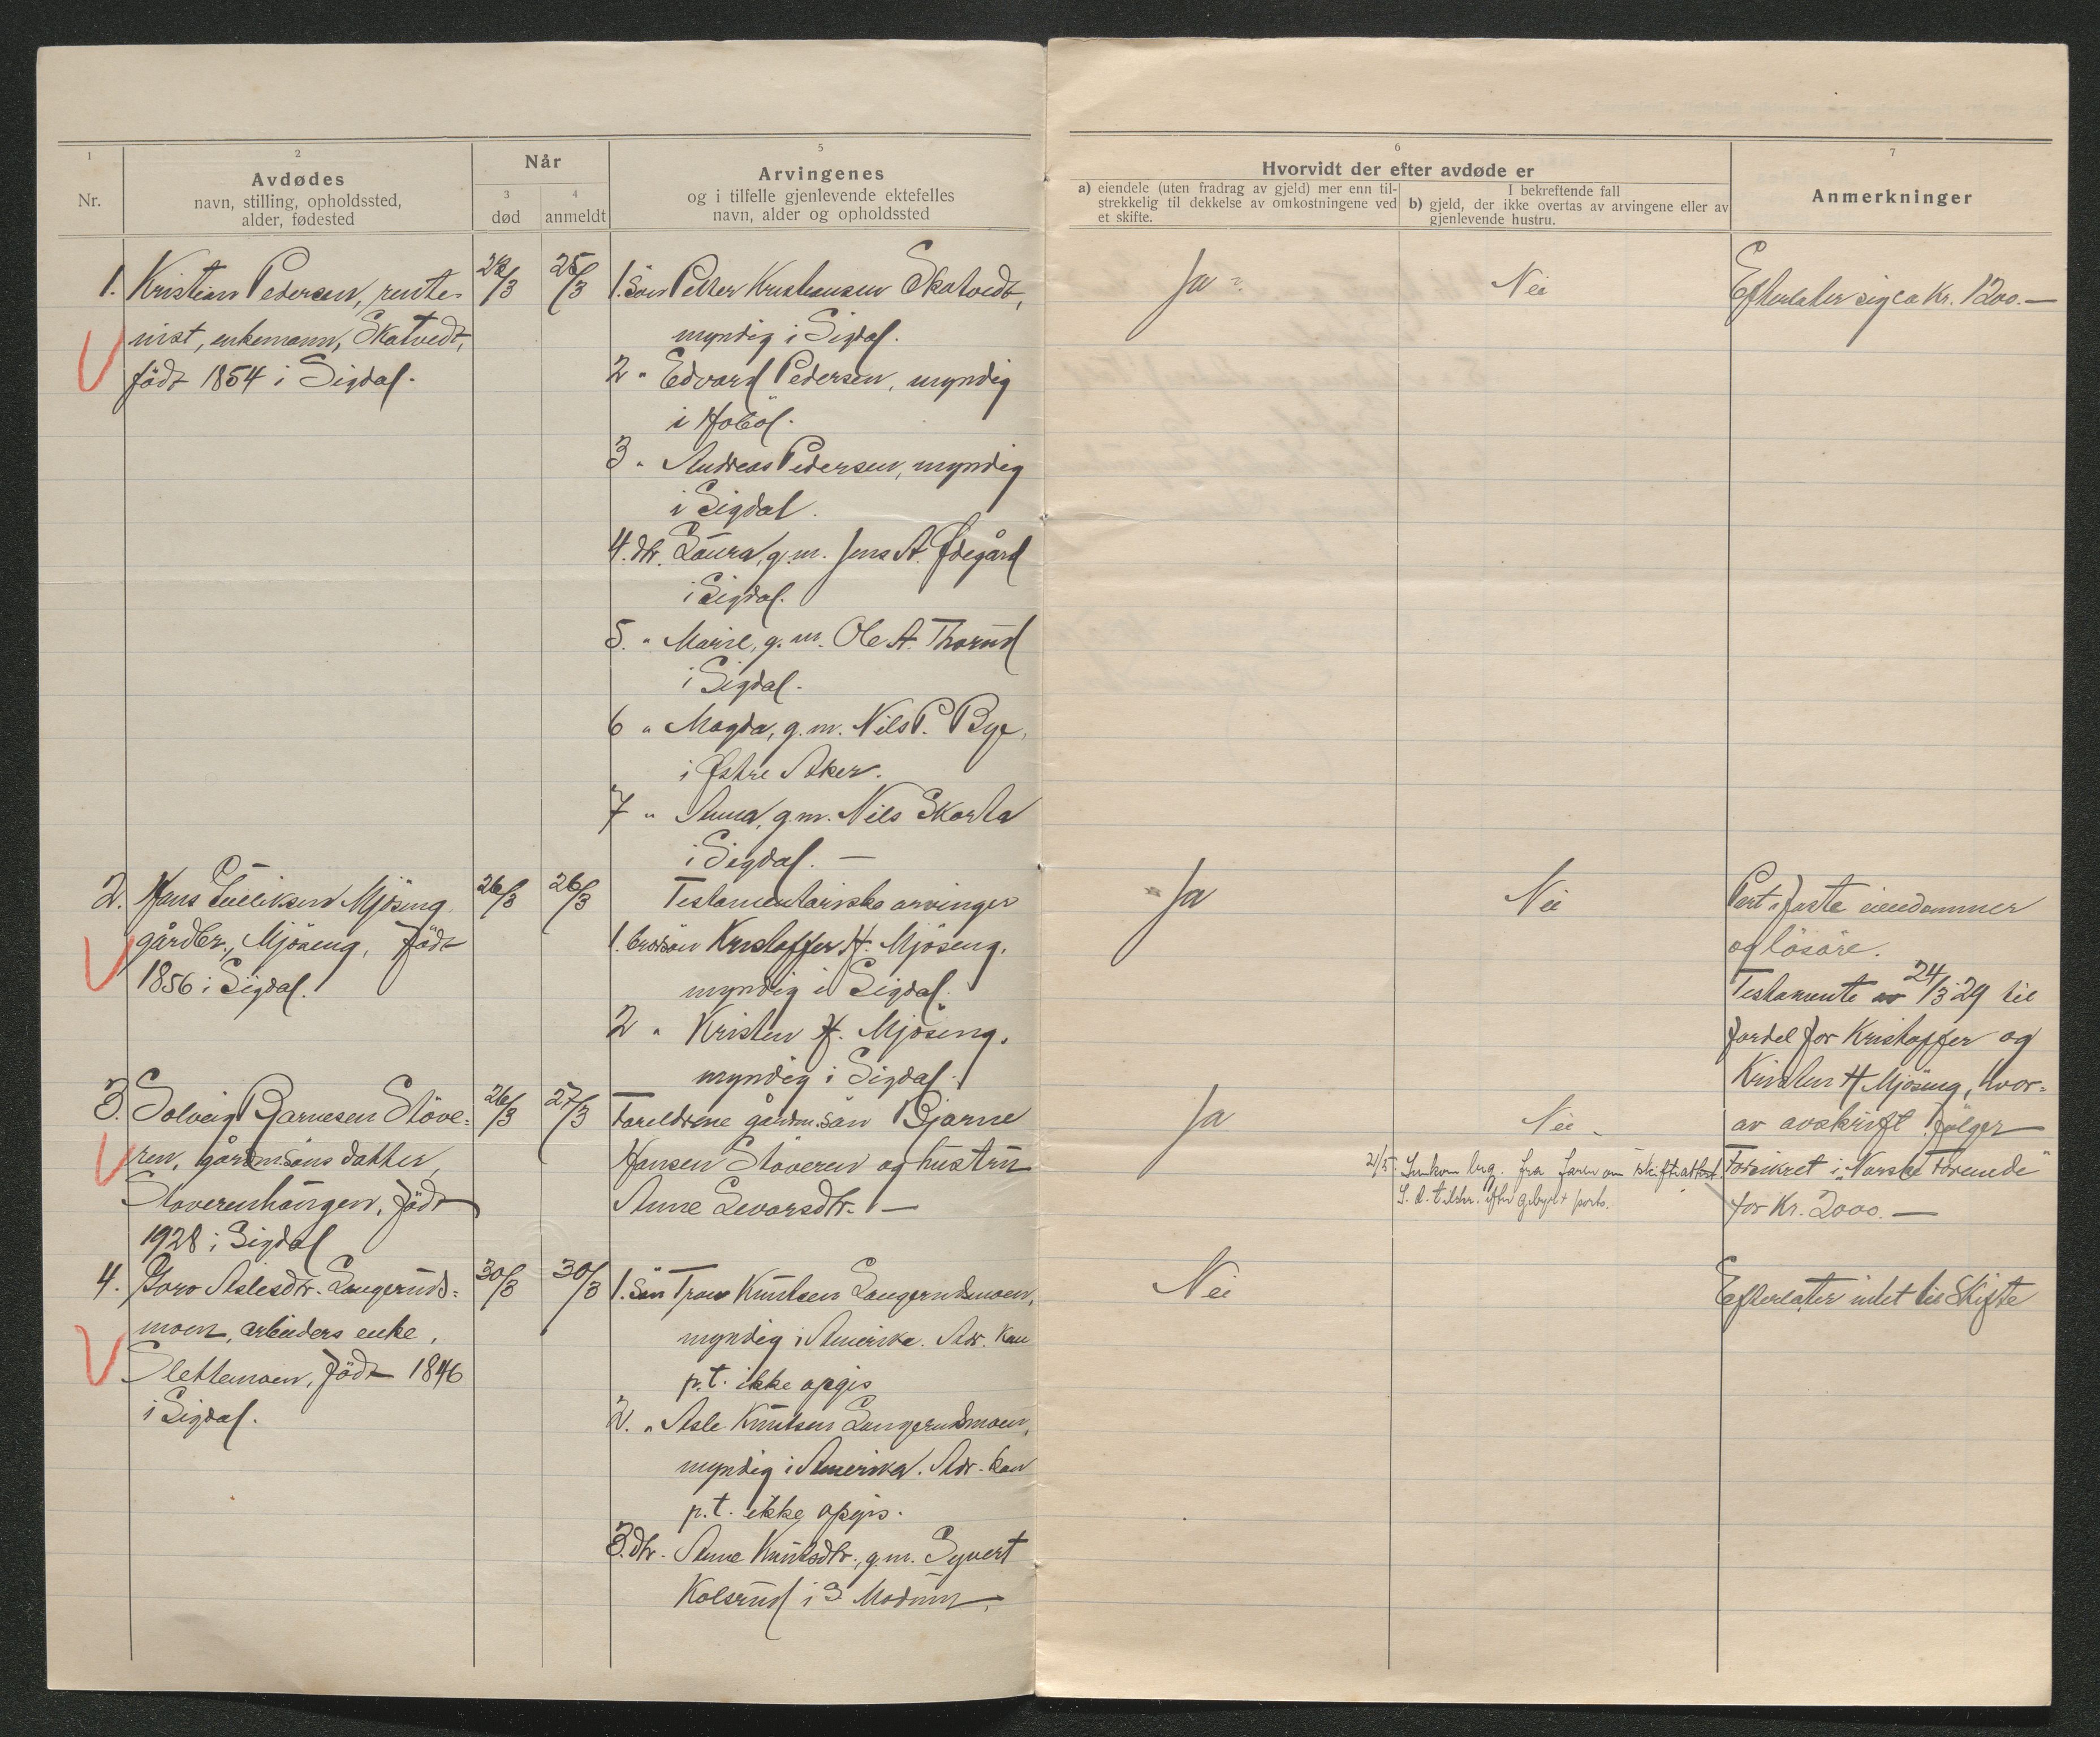 1
2
Når
5
Avdødes
Arvingenes
Nr.
navn, stilling, opholdssted,
alder, fødested
3
død
4
anmeldt
og i tilfelle gjenlevende ektefelles
navn, alder og opholdssted
6
Hvorvidt der efter avdøde er
a) eiendele (uten fradrag av gjeld) mer enn til-
strekkelig til dekkelse av omkostningene ved
et skifte.
I bekreftende fall
b) gjeld, der ikke overtas av arvingene eller av
gjenlevende hustru.
7
Anmerkninger
1. Kristian Pedersen, rente-
nist, enkemann, Skatvedt,
född 1854 i Sigdal.
24/3
25/3
1. sön Petter Kristiansen Skatvedt,
myndig i Sigdal.
2 " Edvard Pedersen, myndig
i Hoböl.
3 " Andreas Pedersen, myndig
i Sigdal.
4. dtr. Laura, g.m. Jens A. Ødegård
i Sigdal.
5. " Marie, g.m. Ole A. Thorud
i Sigdal.
6 " Magda, g.m. Nils P. Bye,
i Østre Aker.
7 " Anna, g.m. Nils Skarta
i Sigdal. —
Ja
Nei
Efterlater sig ca Kr. 1200.—
2. Hans Mjöseng
gårdbr., Mjöseng, född
1856 i Sigdal.
26/3
26/3
Testamentariske arvinger
1. brorsön Kristoffer H. Mjöseng,
myndig i Sigdal.
2 " Kristen H. Mjöseng,
myndig i Sigdal.
Ja
Nei
faste eiendommer
og lösöre.
Testamente av 24/3 29 til
fordel for Kristoffer og
Kristen H Mjöseng, hvor-
av avskrift fölger
3. Solveig Bjarnesen Stöve-
ren, gårdm.söns datter,
Stoverenhaugen, född
1928 i Sigdal
26/3
27/3
Foreldrene gårdm.sön Bjarne
Hansen Stöveren og hustru
Anne Sevarsdtr. —
Ja
Nei
2/5 Innkom beg. fra faren om skifteattest.
S. d. tilskr. efter gebyr + porto.
Forsikret i "Norske Forenede"
for Kr. 2000.—
4. Goro Aslesdtr. Langeruds-
moen, arbeiders enke,
Slettemoen, född 1846
i Sigdal.
30/3
30/3
1. sön Tron Knutsen Langerudsmoen,
myndig i Amerika. Adr. kan
p.t. ikke opgis
2. " Asle Knutsen Langerudsmoen,
myndig i Amerika. Adr. kan
p.t. ikke opgis.
3. dtr. Anne Knutsdtr., g.m. Syvert
Kolsrud i S Modum.
Nei
Efterlater intet til Skifte